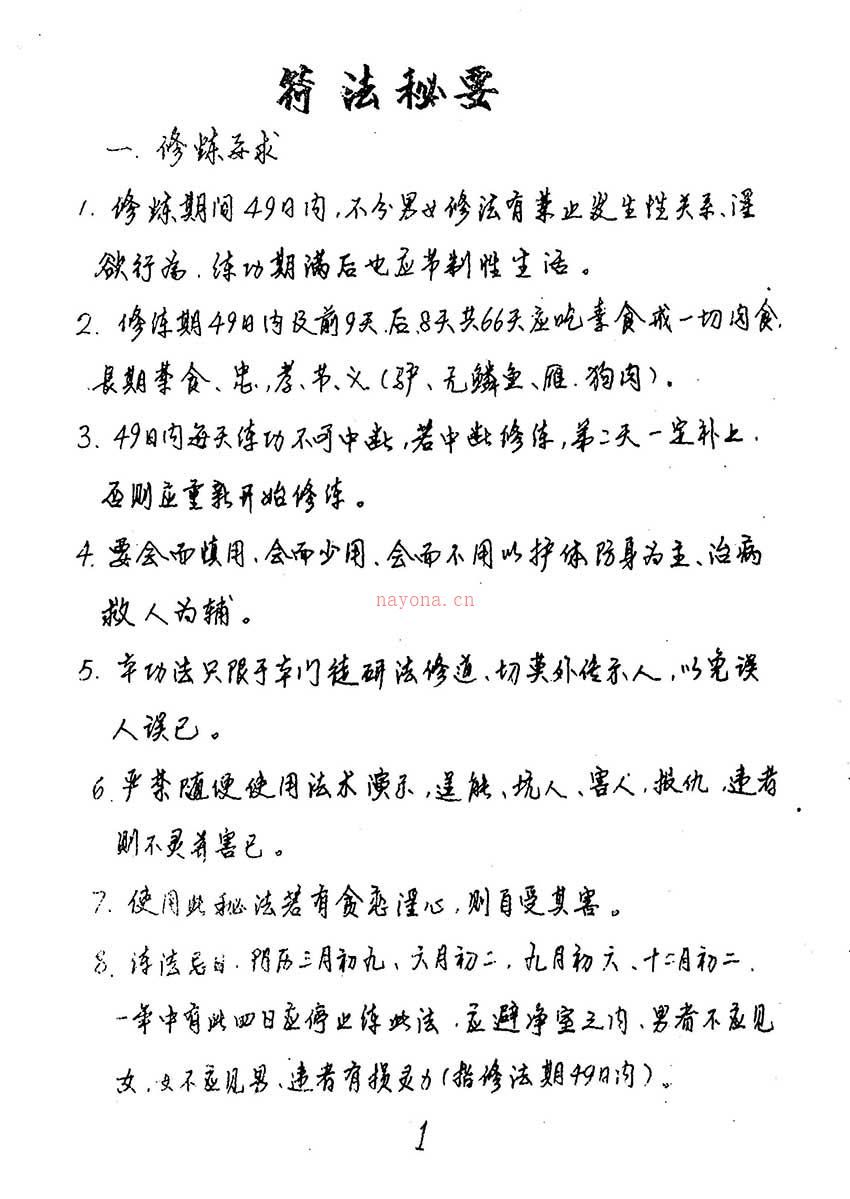 符法秘要
一.修炼要求
1.修炼期间49日内,不分男女修法有禁止发生性关系、淫
欲行为.练功期满后也应节制性生活。
2.修炼期49日内及前9天.后.8天共66天应吃素食戒一切肉食.
長期禁食、忠,孝、节、义(驴、无鳞鱼、雁.狗肉)。
3.49日内每天练功不可中断,若中断修练,第二天一定补上.
否则应重新开始修练。
4.要会而慎用、会而少用、会而不用以护体防身为主、治病
救人为辅。
nayona.cn
5.本功法只限于本门徒研法修道、切莫外传示人,以免误
人误已。
6.严禁随便使用法术演示,逞能、坑人、害人,报仇,违者
则不灵并害已。
7.使用此秘法若有贪恋淫心,则自受其害。
8.练法忌日.阴历三月初九、六月初二,九月初六、十二月初二.
一年中有此四日应停止练此法.应避净室之内、男者不应见
女,女不应见男、违者有损灵力(指修法期49日内)。
1